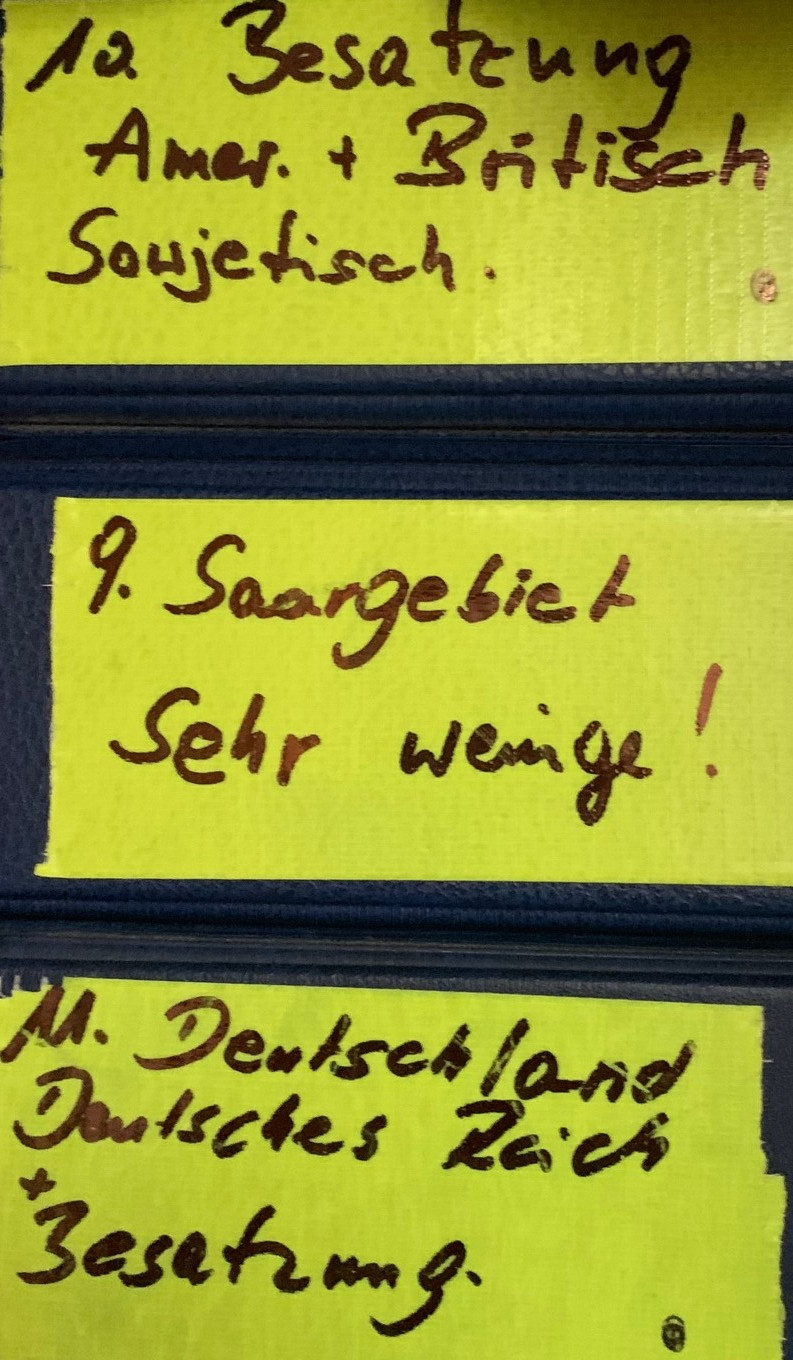 10. Besatzung
Amer. + Britisch
Sowjetisch.
9. Saargebiet
Sehr wenige!
11. Deutschland
Deutsches Reich
+
Besatzung.